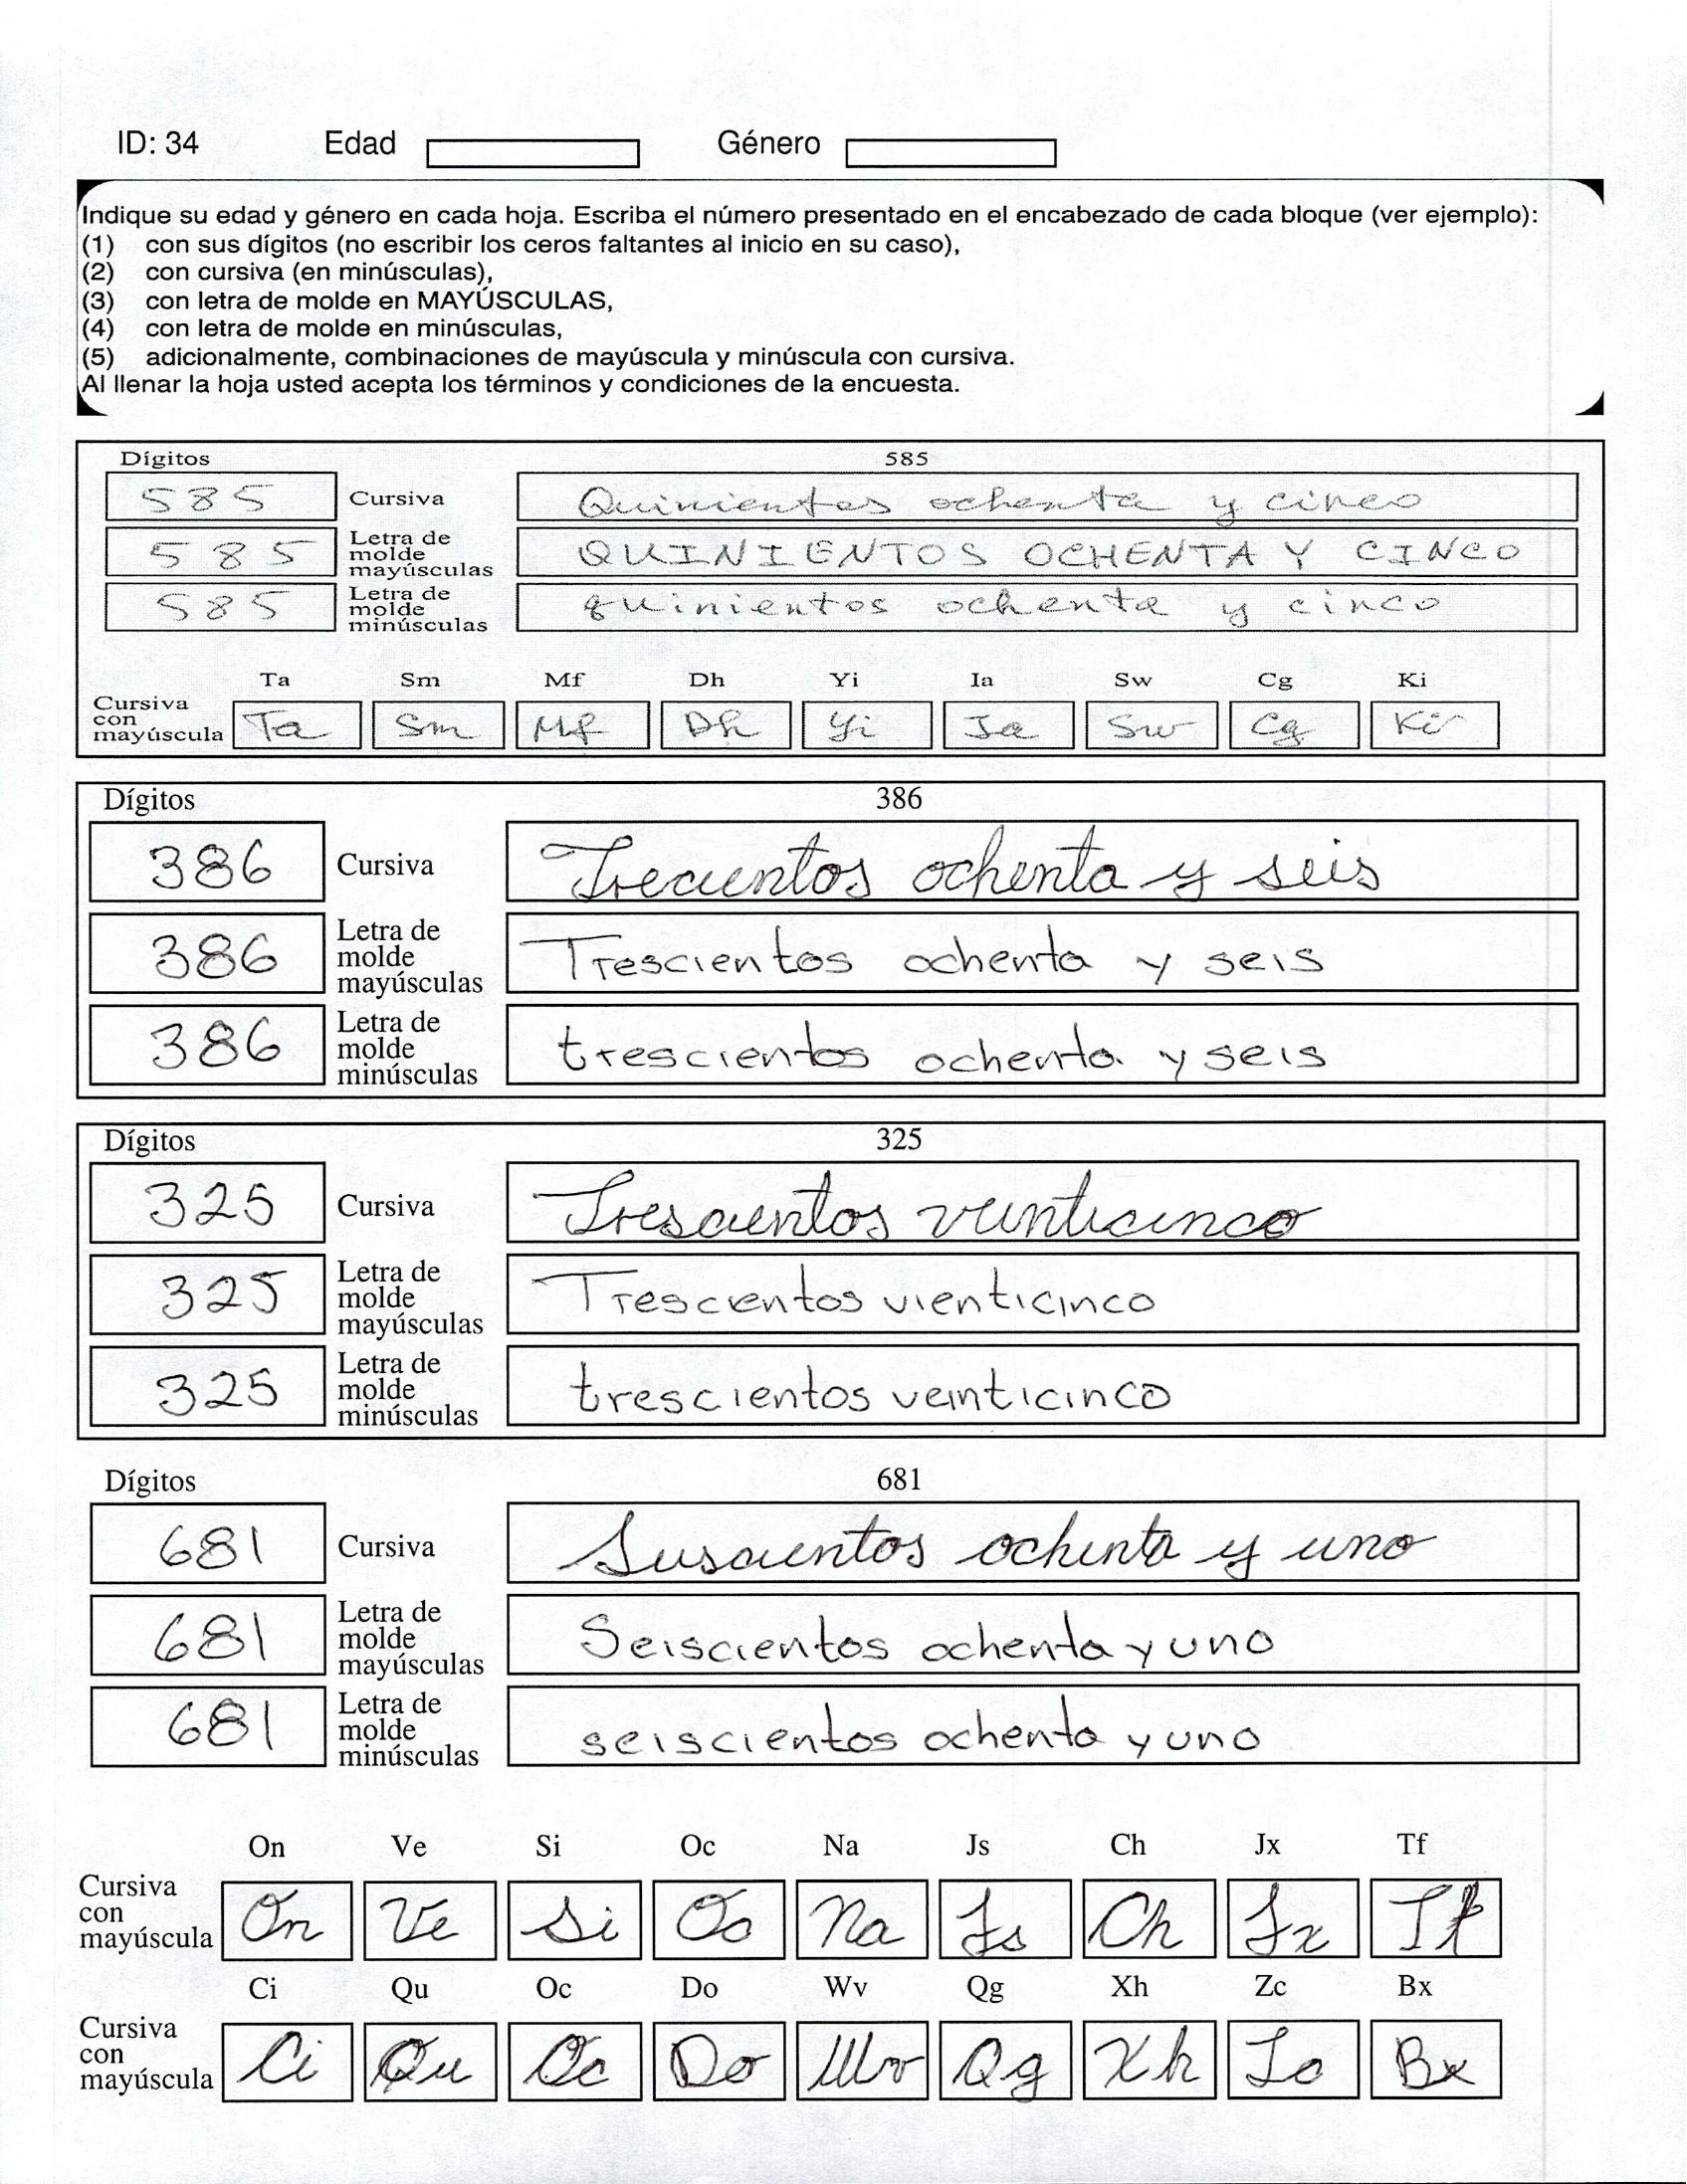 ID: 34 Edad Género
Indique su edad y género en cada hoja. Escriba el número presentado en el encabezado de cada bloque (ver ejemplo):
(1) con sus dígitos (no escribir los ceros faltantes al inicio en su caso),
(2) con cursiva (en minúsculas),
(3) con letra de molde en MAYÚSCULAS,
(4) con letra de molde en minúsculas,
(5) adicionalmente, combinaciones de mayúscula y minúscula con cursiva.
Al llenar la hoja usted acepta los términos y condiciones de la encuesta.
Dígitos 585
585 Cursiva Quinientos ochenta y cinco
585 Letra de molde mayúsculas QUINIENTOS OCHENTA Y CINCO
585 Letra de molde minúsculas quinientos ochenta y cinco
Ta Sm Mf Dh Yi Ia Sw Cg Ki
Cursiva con mayúscula Ta Sm Mf Dh Yi Ia Sw Cg Ki
Dígitos 386
386 Cursiva Trecientos ochenta y seis
386 Letra de molde mayúsculas Trescientos ochenta y seis
386 Letra de molde minúsculas trescientos ochenta y seis
Dígitos 325
325 Cursiva Trescientos veinticinco
325 Letra de molde mayúsculas Trescientos vienticinco
325 Letra de molde minúsculas trescientos veinticinco
Dígitos 681
681 Cursiva Seiscientos ochenta y uno
681 Letra de molde mayúsculas Seiscientos ochenta y uno
681 Letra de molde minúsculas seiscientos ochenta y uno
On Ve Si Oc Na Js Ch Jx Tf
Cursiva con mayúscula On Ve Si Oc Na Js Ch Jx Tf
Ci Qu Oc Do Wv Qg Xh Zc Bx
Cursiva con mayúscula Ci Qu Oc Do Wv Qg Xh Zc Bx